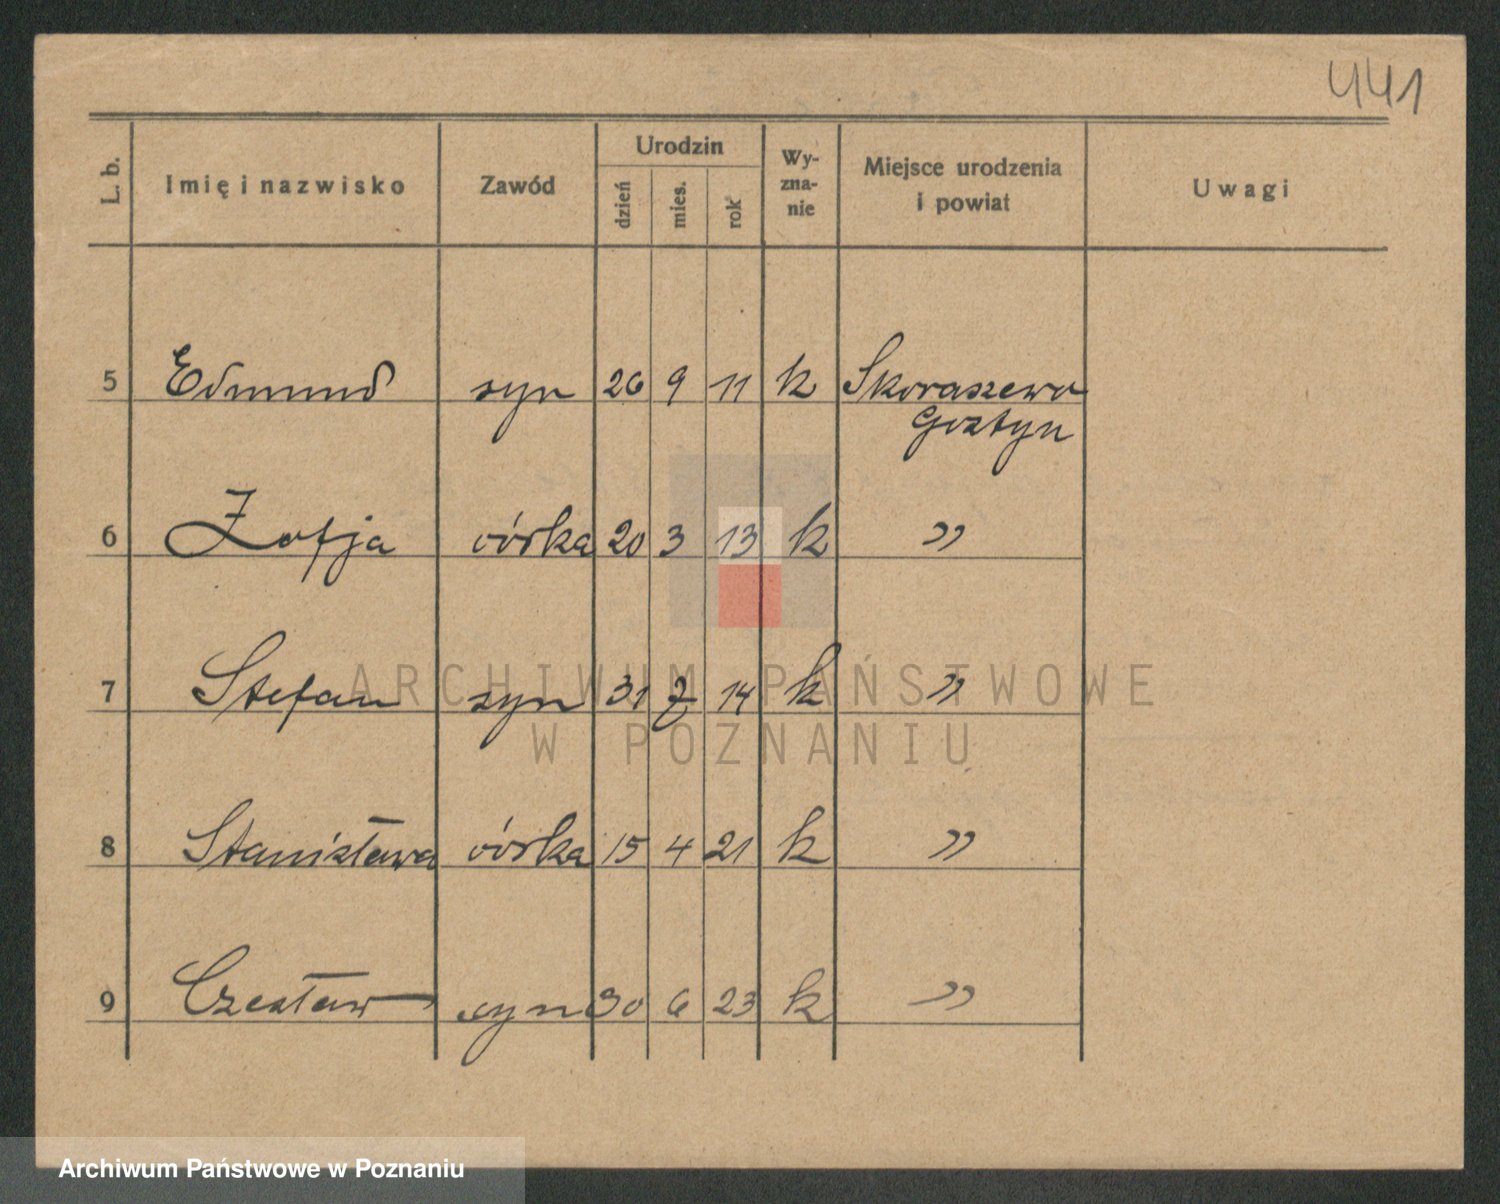 441
L. b. Imię i nazwisko Zawód Urodzin dzień mies. rok Wy-zna-nie Miejsce urodzenia i powiat Uwagi
5 Edmund syn 26 9 11 k Skoraszewo
Gostyn
6 Zofja córka 20 3 13 k "
7 Stefan syn 31 7 14 k "
8 Stanisława córka 15 4 21 k "
9 Czesław syn 30 6 23 k "
ARCHIWUM PAŃSTWOWE
W POZNANIU
Archiwum Państwowe w Poznaniu